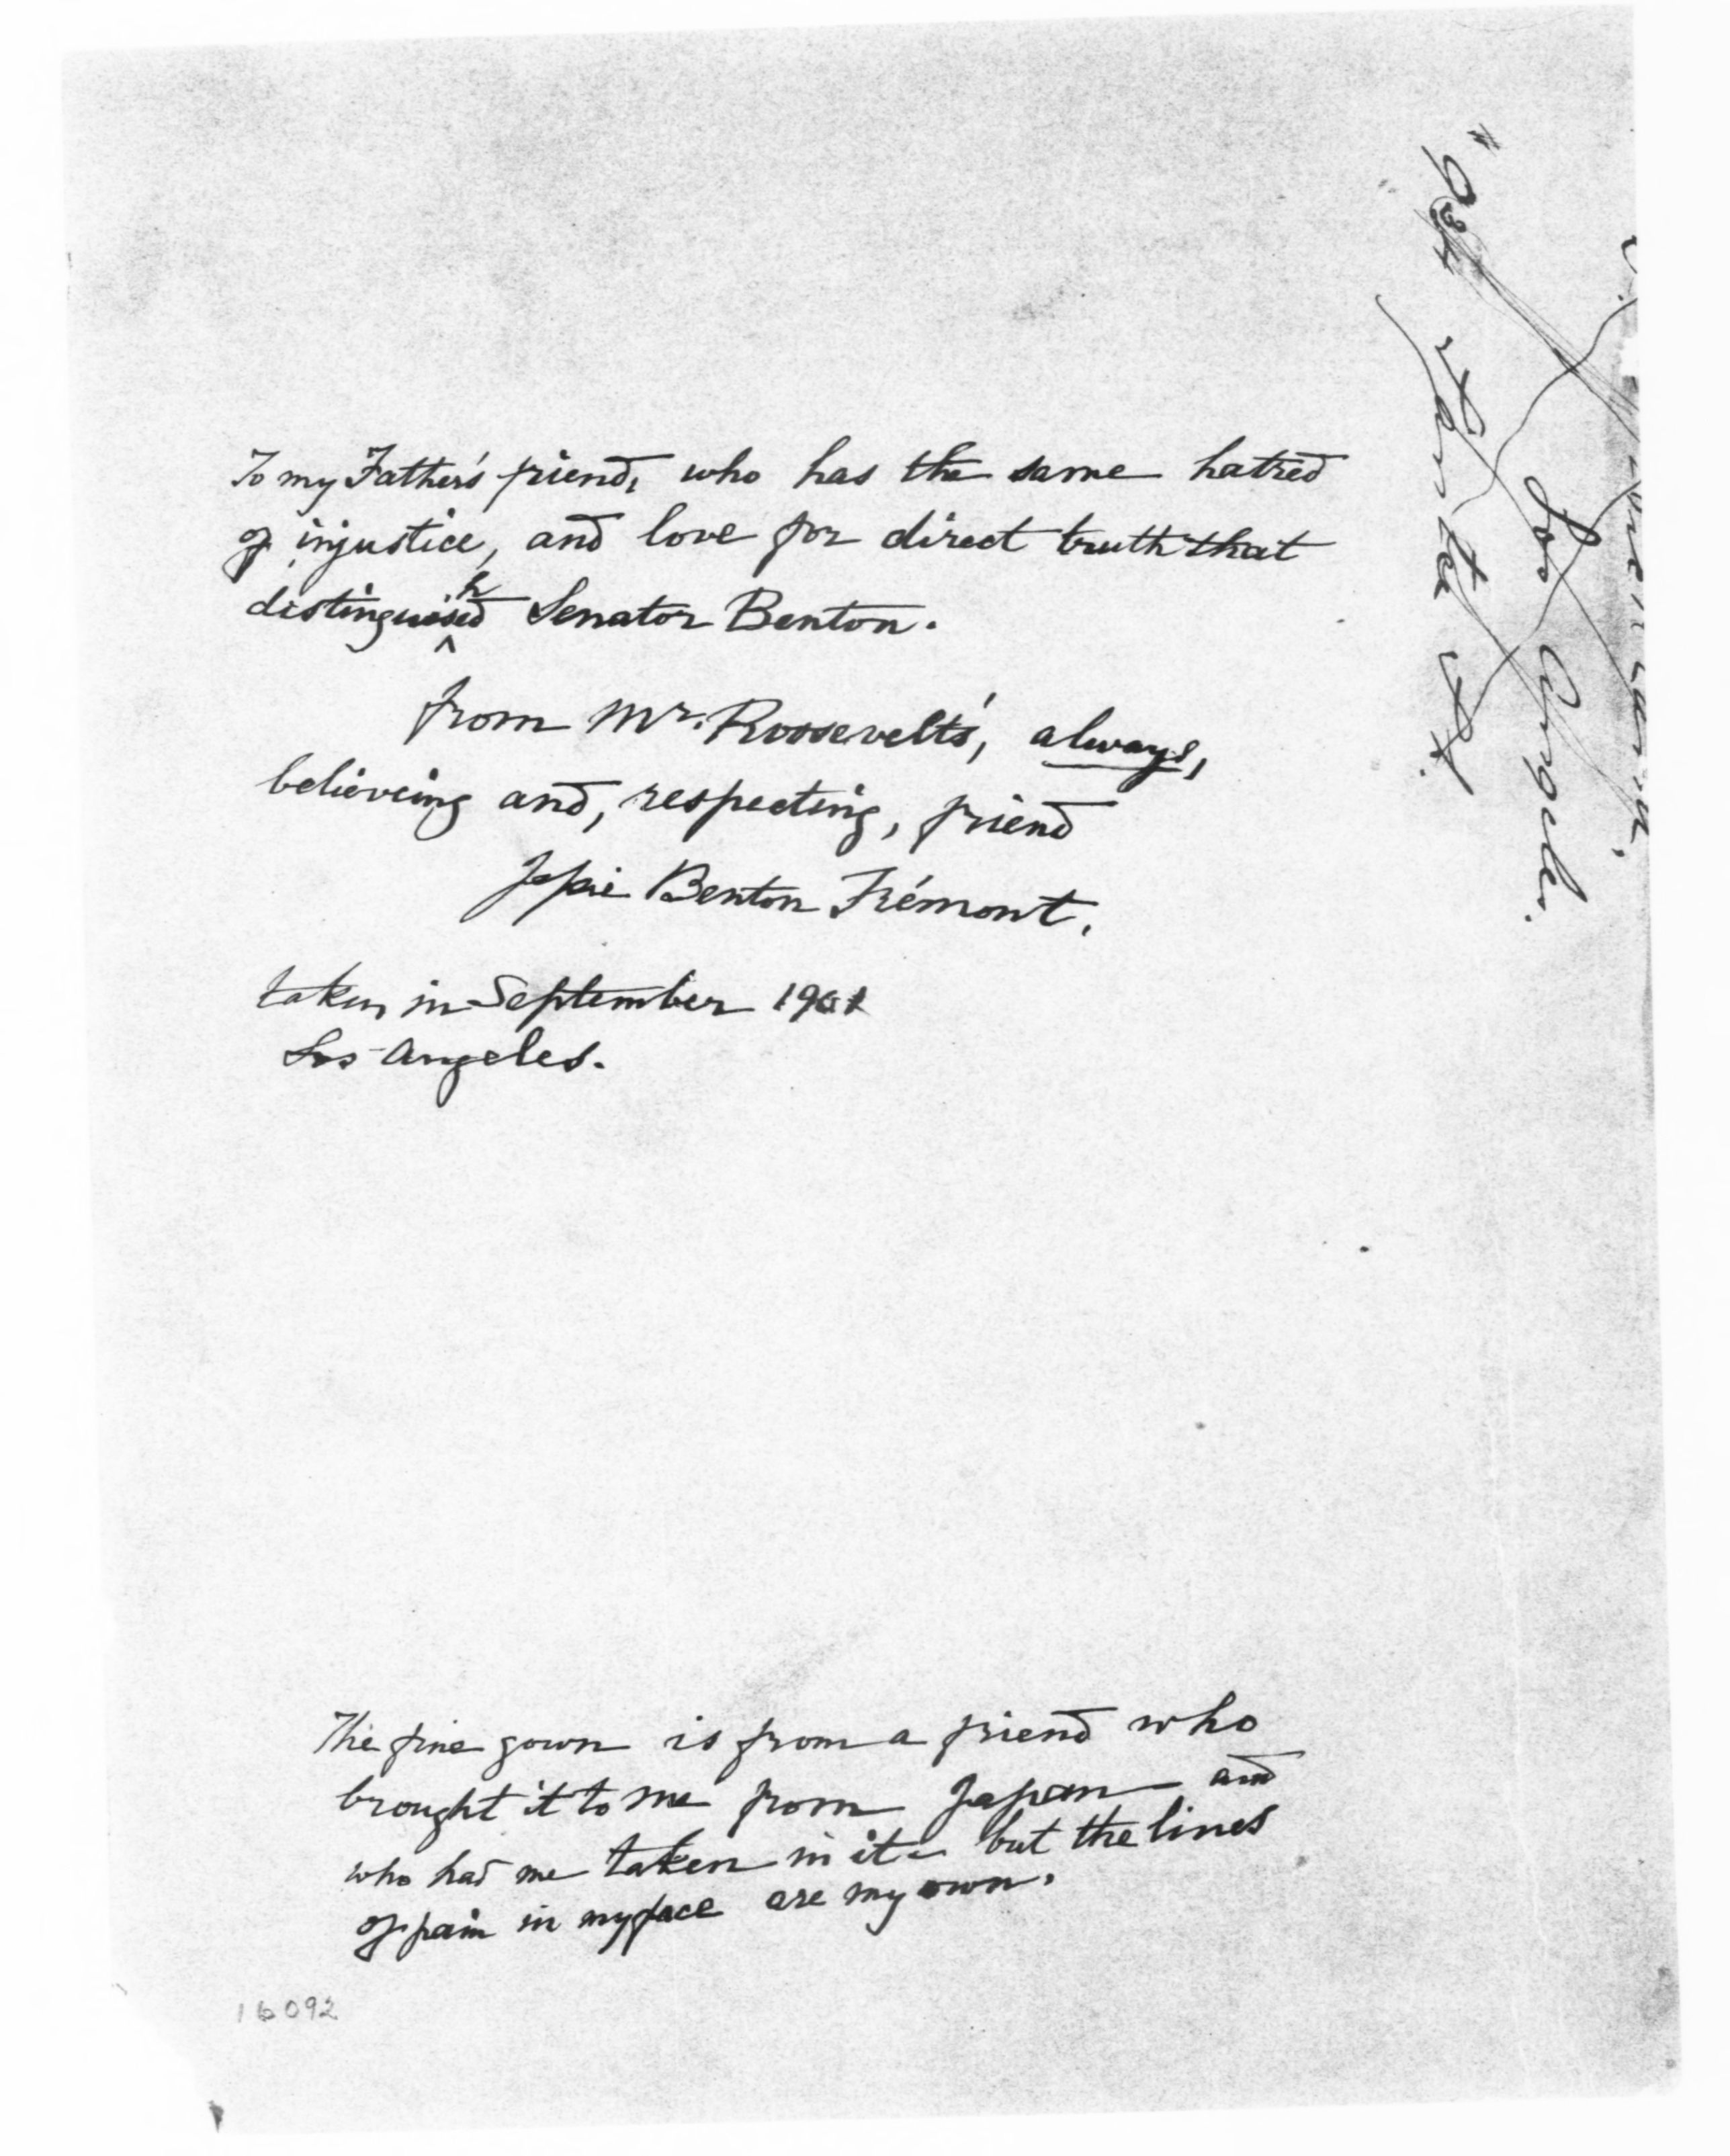 To my Father's friend, who has the same hatred
of injustice, and love for direct truth that
distinguished Senator Benton.
from Mr. Roosevelt's, always,
believeing and, respecting, friend
Jessie Benton Frémont.
taken in September 1901
Los Angeles.
The fine gown is from a friend who
brought it to me from Japan and
who had me taken in it - but the lines
of pain in my face are my own.
16092
Los Angeles.